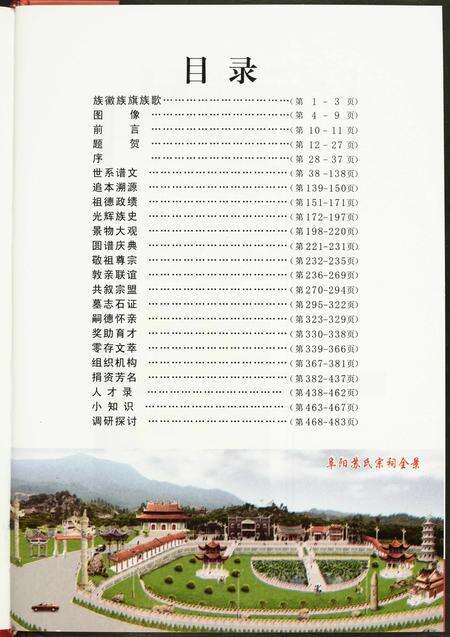 目录
族徽族旗族歌……………………………(第 1 - 3 页)
图 像 ……………………………(第 4 - 9 页)
前 言 ……………………………(第 10-11 页)
题 贺 ……………………………(第 12-27 页)
序 ……………………………(第 28-37 页)
世系谱文 ……………………………(第 38-138页)
追本溯源 ……………………………(第139-150页)
祖德政绩 ……………………………(第151-171页)
光辉族史 ……………………………(第172-197页)
景物大观 ……………………………(第198-220页)
圆谱庆典 ……………………………(第221-231页)
敬祖尊宗 ……………………………(第232-235页)
敦亲联谊 ……………………………(第236-269页)
共叙宗盟 ……………………………(第270-294页)
墓志石证 ……………………………(第295-322页)
嗣德怀亲 ……………………………(第323-329页)
奖助育才 ……………………………(第330-338页)
零存文萃 ……………………………(第339-366页)
组织机构 ……………………………(第367-381页)
捐资芳名 ……………………………(第382-437页)
人 才 录 ……………………………(第438-462页)
小 知 识 ……………………………(第463-467页)
调研探讨 ……………………………(第468-483页)
阜阳苏氏宗祠全景